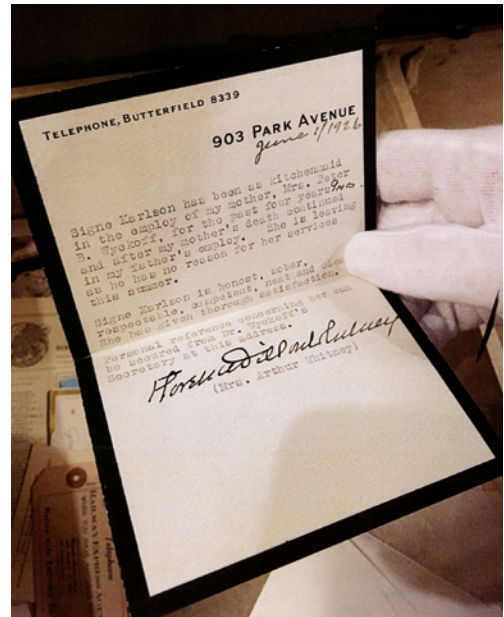 TELEPHONE, BUTTERFIELD 8339
903 PARK AVENUE
June 1/1926
Signe Karlson has been as kitchenmaid
in the employ of my mother, Mrs. Peter
B. Wyckoff, for the past four years
and after my mother's death continued
in my father's employ. She is leaving
as he has no reason for her services
this summer.
Signe Karlson is honest, sober,
respectable, competent, neat and
She has given thorough satisfaction.
Personal reference concerning her can
be secured from Dr. Wyckoff's
Secretary at this address.
Florence Whitney
(Mrs. Arthur Whitney)
Telephone